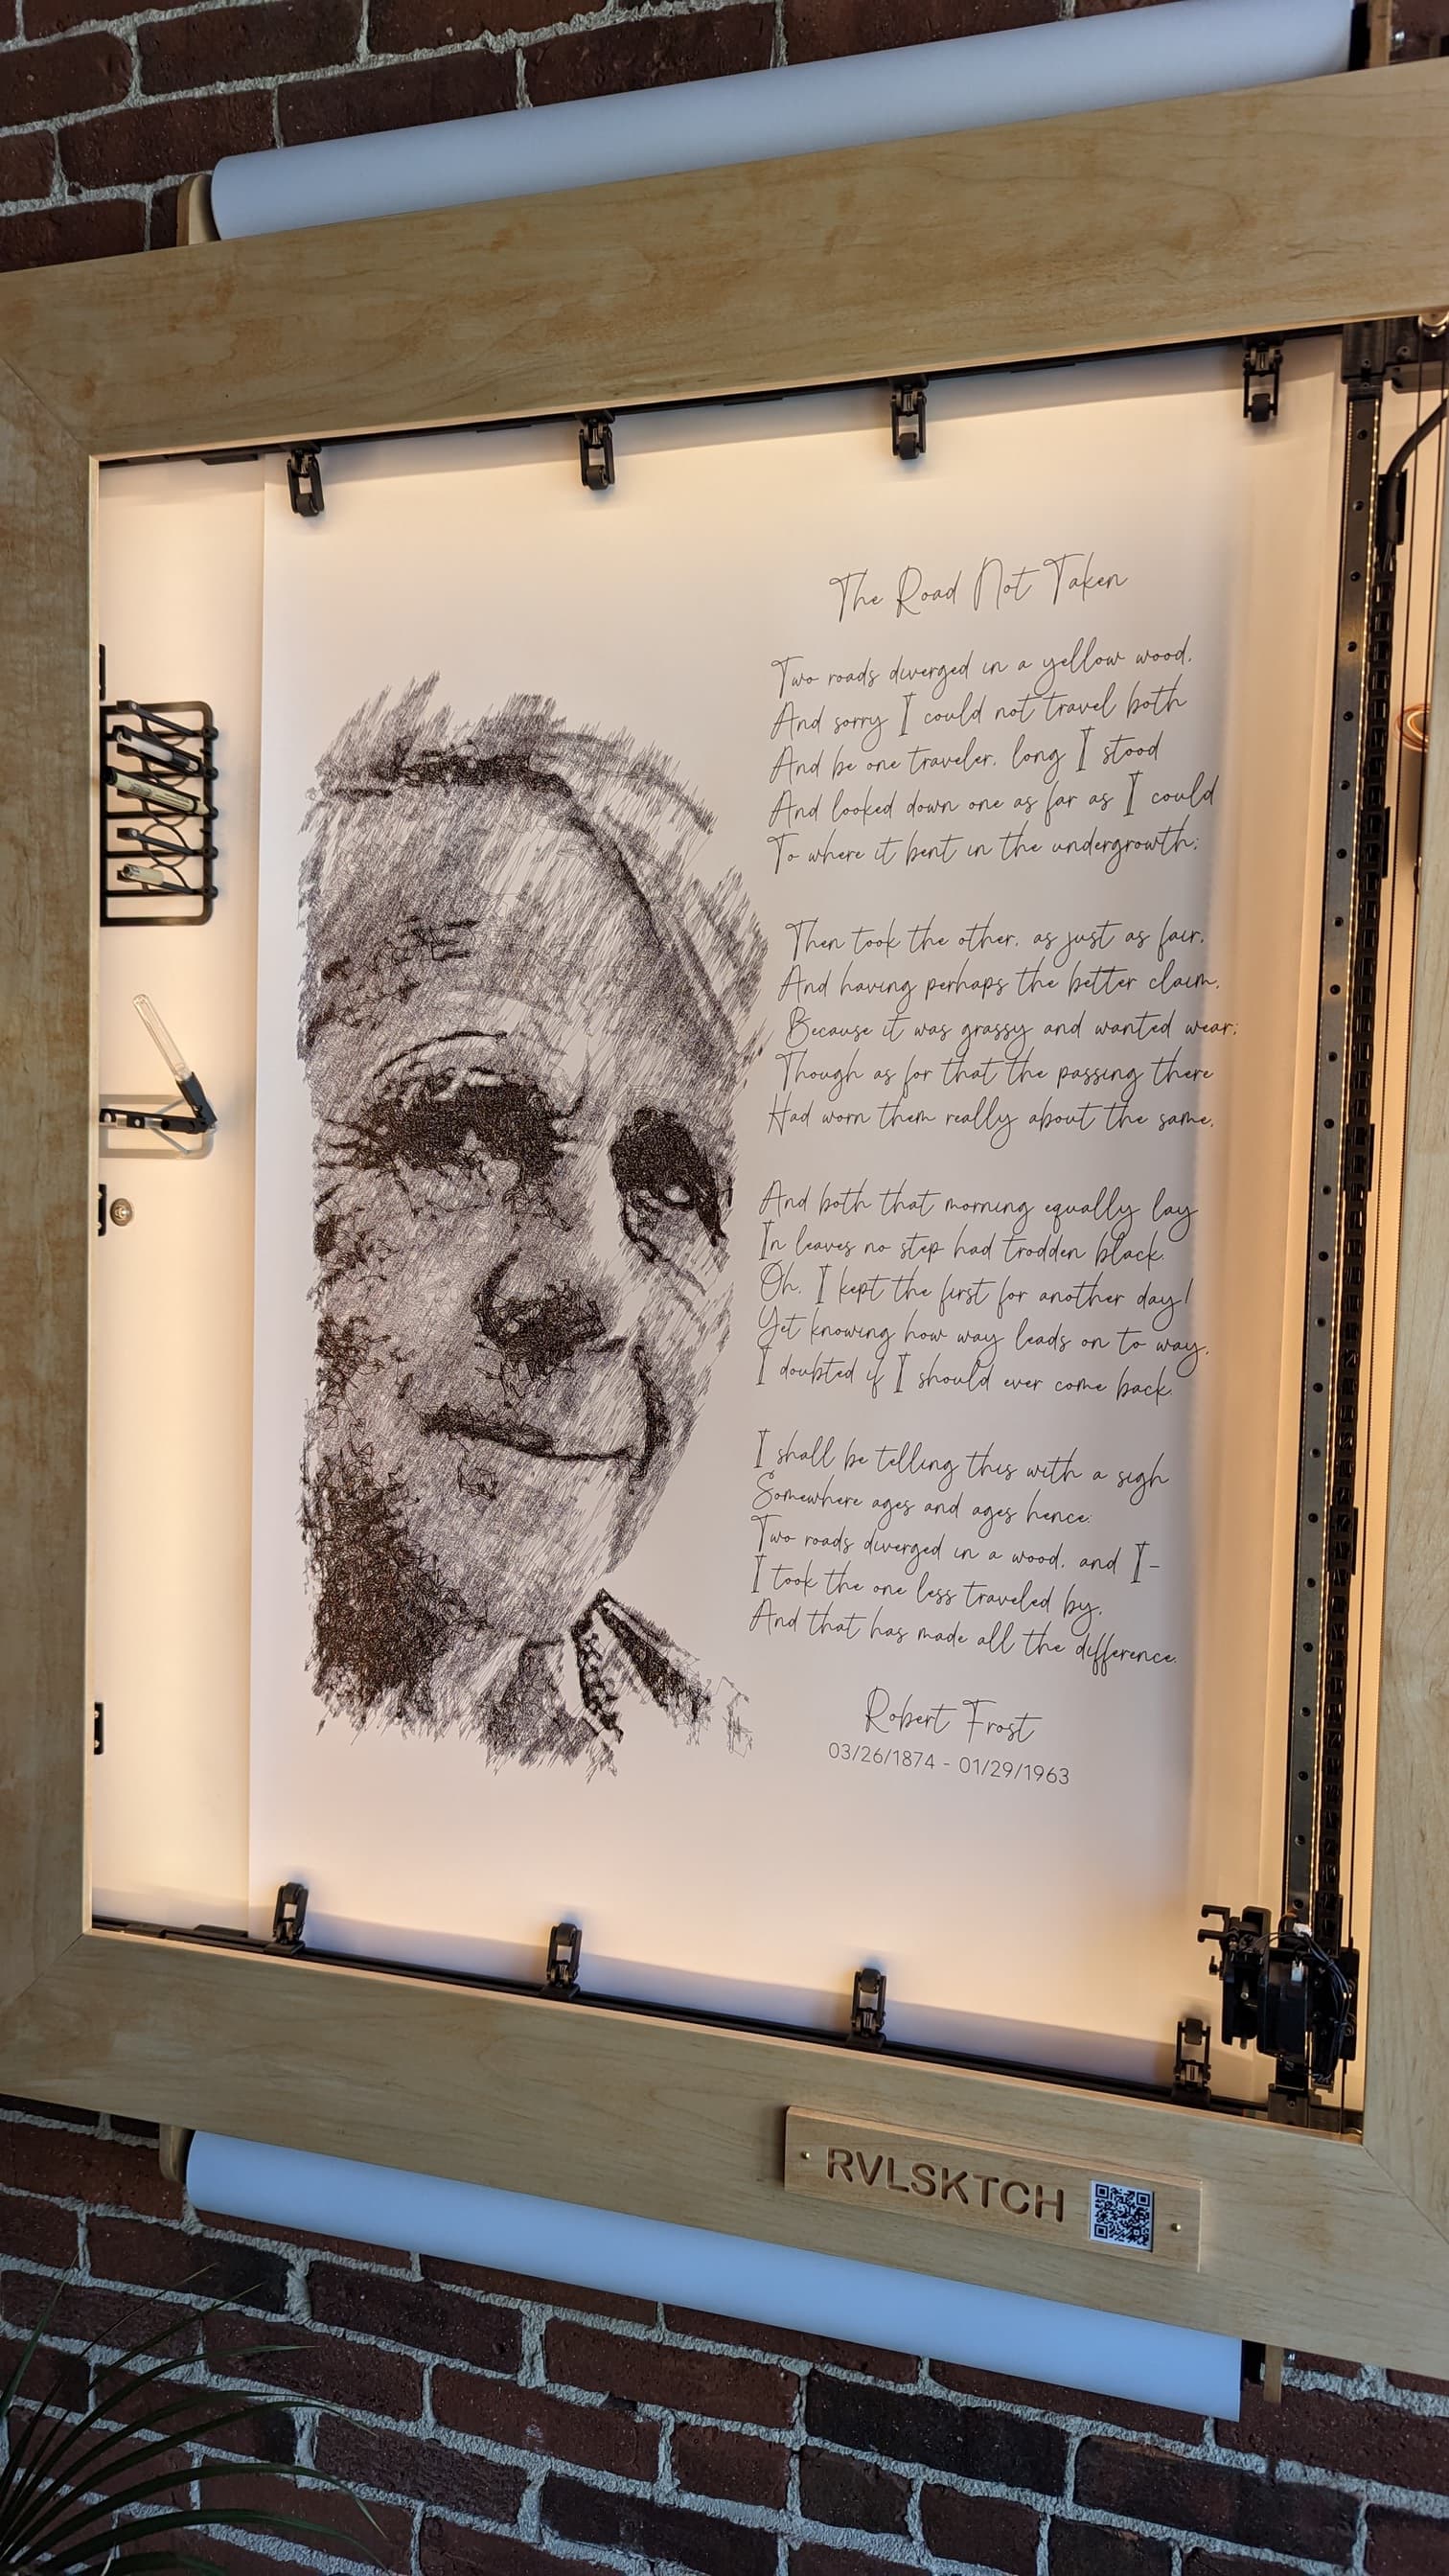 The Road Not Taken
Two roads diverged in a yellow wood,
And sorry I could not travel both
And be one traveler, long I stood
And looked down one as far as I could
To where it bent in the undergrowth;
Then took the other, as just as fair,
And having perhaps the better claim,
Because it was grassy and wanted wear;
Though as for that the passing there
Had worn them really about the same,
And both that morning equally lay
In leaves no step had trodden black.
Oh, I kept the first for another day!
Yet knowing how way leads on to way,
I doubted if I should ever come back.
I shall be telling this with a sigh
Somewhere ages and ages hence:
Two roads diverged in a wood, and I-
I took the one less traveled by,
And that has made all the difference.
Robert Frost
03/26/1874 - 01/29/1963
RVLSKTCH